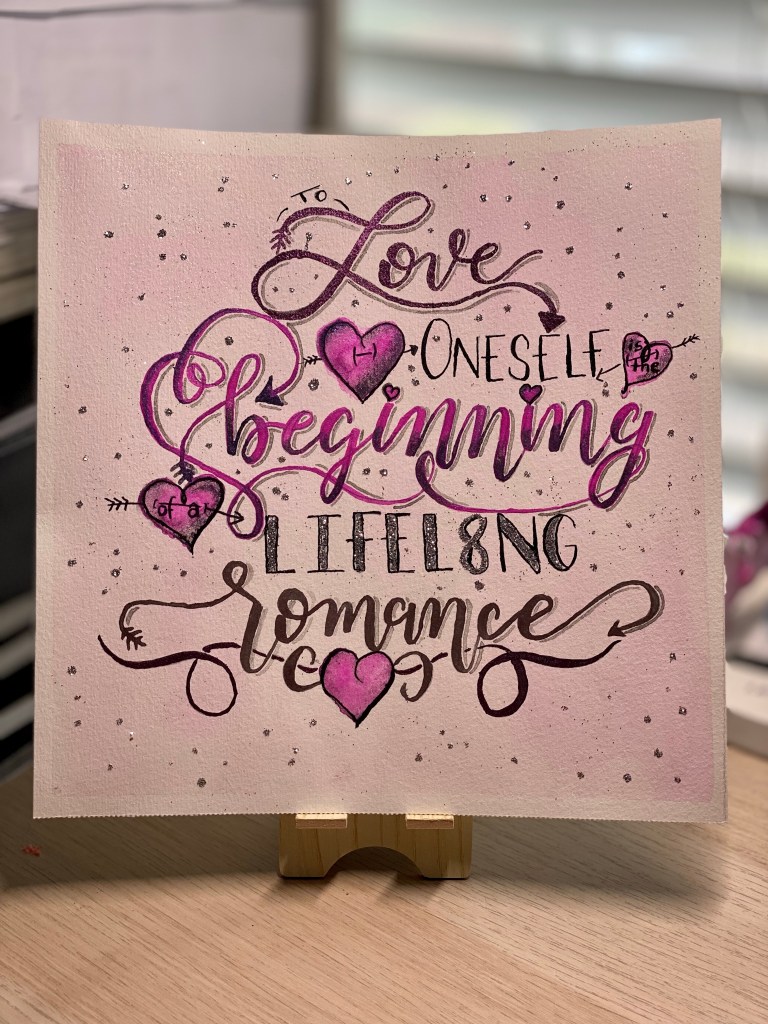 To
Love
ONESELF is the
beginning
of a
LIFELONG
romance